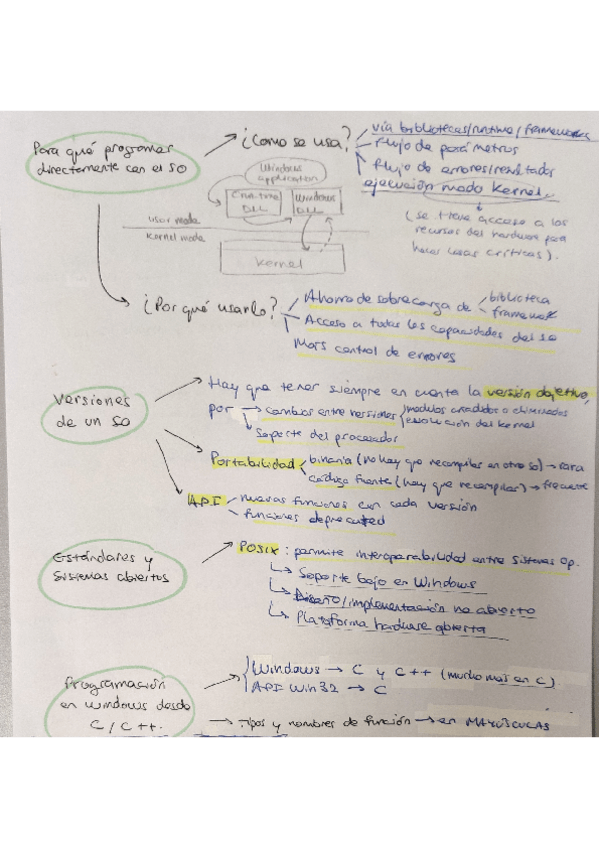 Para qué programar
directamente con el SO
¿Cómo se usa?
vía bibliotecas/runtime/frameworks
flujo de parámetros
flujo de errores/resultados
ejecución modo Kernel
(se tiene acceso a los
recursos del hardware para
hacer cosas críticas).
Windows
application
C runtime
DLL
Windows
DLL
User mode
Kernel mode
Kernel
¿Por qué usarlo?
Ahorro de sobrecarga de
biblioteca
framework
Acceso a todas las capacidades del so
Más control de errores
Versiones
de un SO
Hay que tener siempre en cuenta la versión objetivo,
por
cambios entre versiones
modulos añadidos o eliminados
evolución del kernel
Soporte del procesador
Portabilidad
binaria (no hay que recompilar en otro so) → rara
código fuente (hay que recompilar) → frecuente
API
nuevas funciones con cada versión
funciones deprecated
Estándares y
Sistemas abiertos
POSIX : permite interoperabilidad entre Sistemas Op.
↳ Soporte bajo en Windows
↳ Diseño/implementación no abierto
↳ Plataforma hardware abierta
Programación
en windows desde
C / C++.
Windows → C y C++ (mucho más en C).
API Win32 → C
Tipos y nombres de función → en MAYÚSCULAS